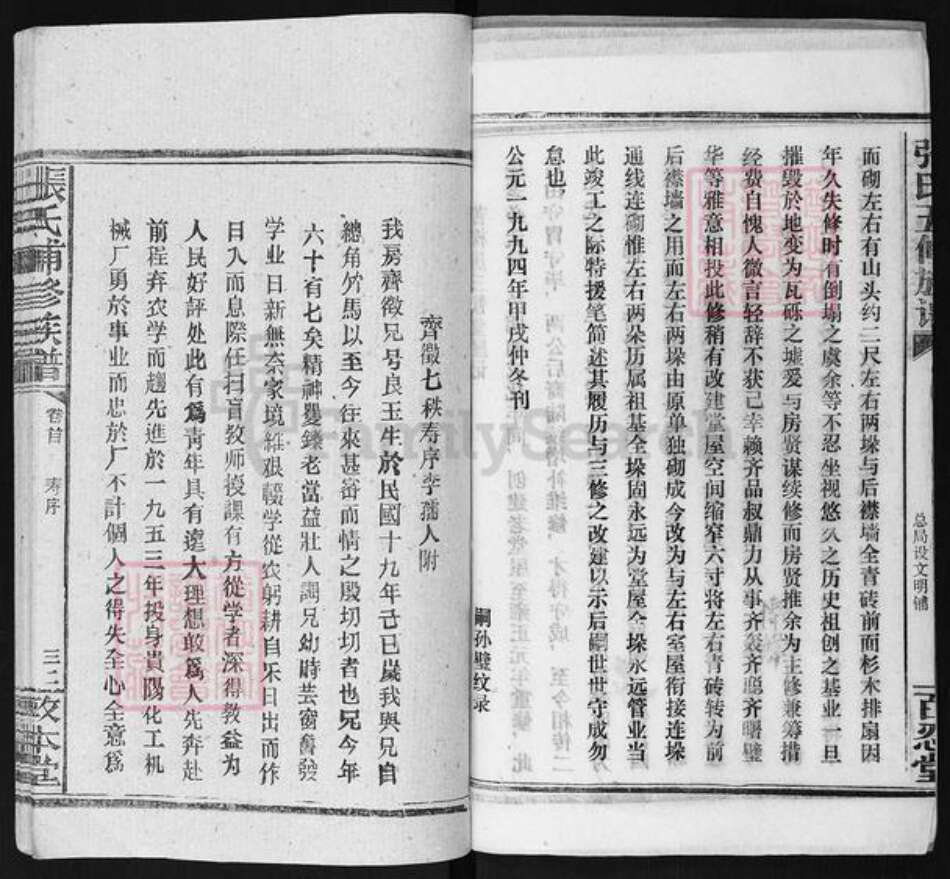 张氏五修族谱
总局设文明铺
百忍堂
而砌左右有山头约二尺左右两垛与后襟墙全青砖前面杉木排扇因
年久失修时有倒塌之虞余等不忍坐视悠久之历史祖创之基业一旦
摧毁於地变为瓦砾之墟爱与房贤谋续修而房贤推余为主修兼筹措
经费自愧人微言轻辞不获己幸赖齐品叔鼎力从事齐齐聪齐曙璧
华等雅意相投此修稍有改建堂屋空间缩窄六寸将左右青砖转为前
后襟墙之用而左右两垛由原单独砌成今改为与左右室屋衔接连垛
通线连砌惟左右两朵历属祖基全垛固永远为堂屋全垛永远管业当
此竣工之际特援笔简述其履历与三修之改建以示后嗣世世守成勿
怠也
公元一九九四年甲戌仲冬刊
嗣孙璧纹录
齊徵七秩寿序李孺人附
我房齊徵兄号良玉生於民國十九年己巳歲我與兄自
總角竹馬以至今往來甚密而情之殷切切者也兄今年
六十有七矣精神矍鑠老當益壯人謂兄幼時芸窗奮發
学业日新無奈家境維艱輟学從农躬耕自乐日出而作
日入而息際任扫盲教师授課有方從学者深得教益为
人民好評处此有爲青年具有遠大理想敢爲人先奔赴
前程弃农学而趨先進於一九五三年投身貴陽化工机
械厂勇於事业而忠於厂不計個人之得失全心全意爲
張氏補修族譜
卷首
寿序
三三
敦本堂
FamilySearch